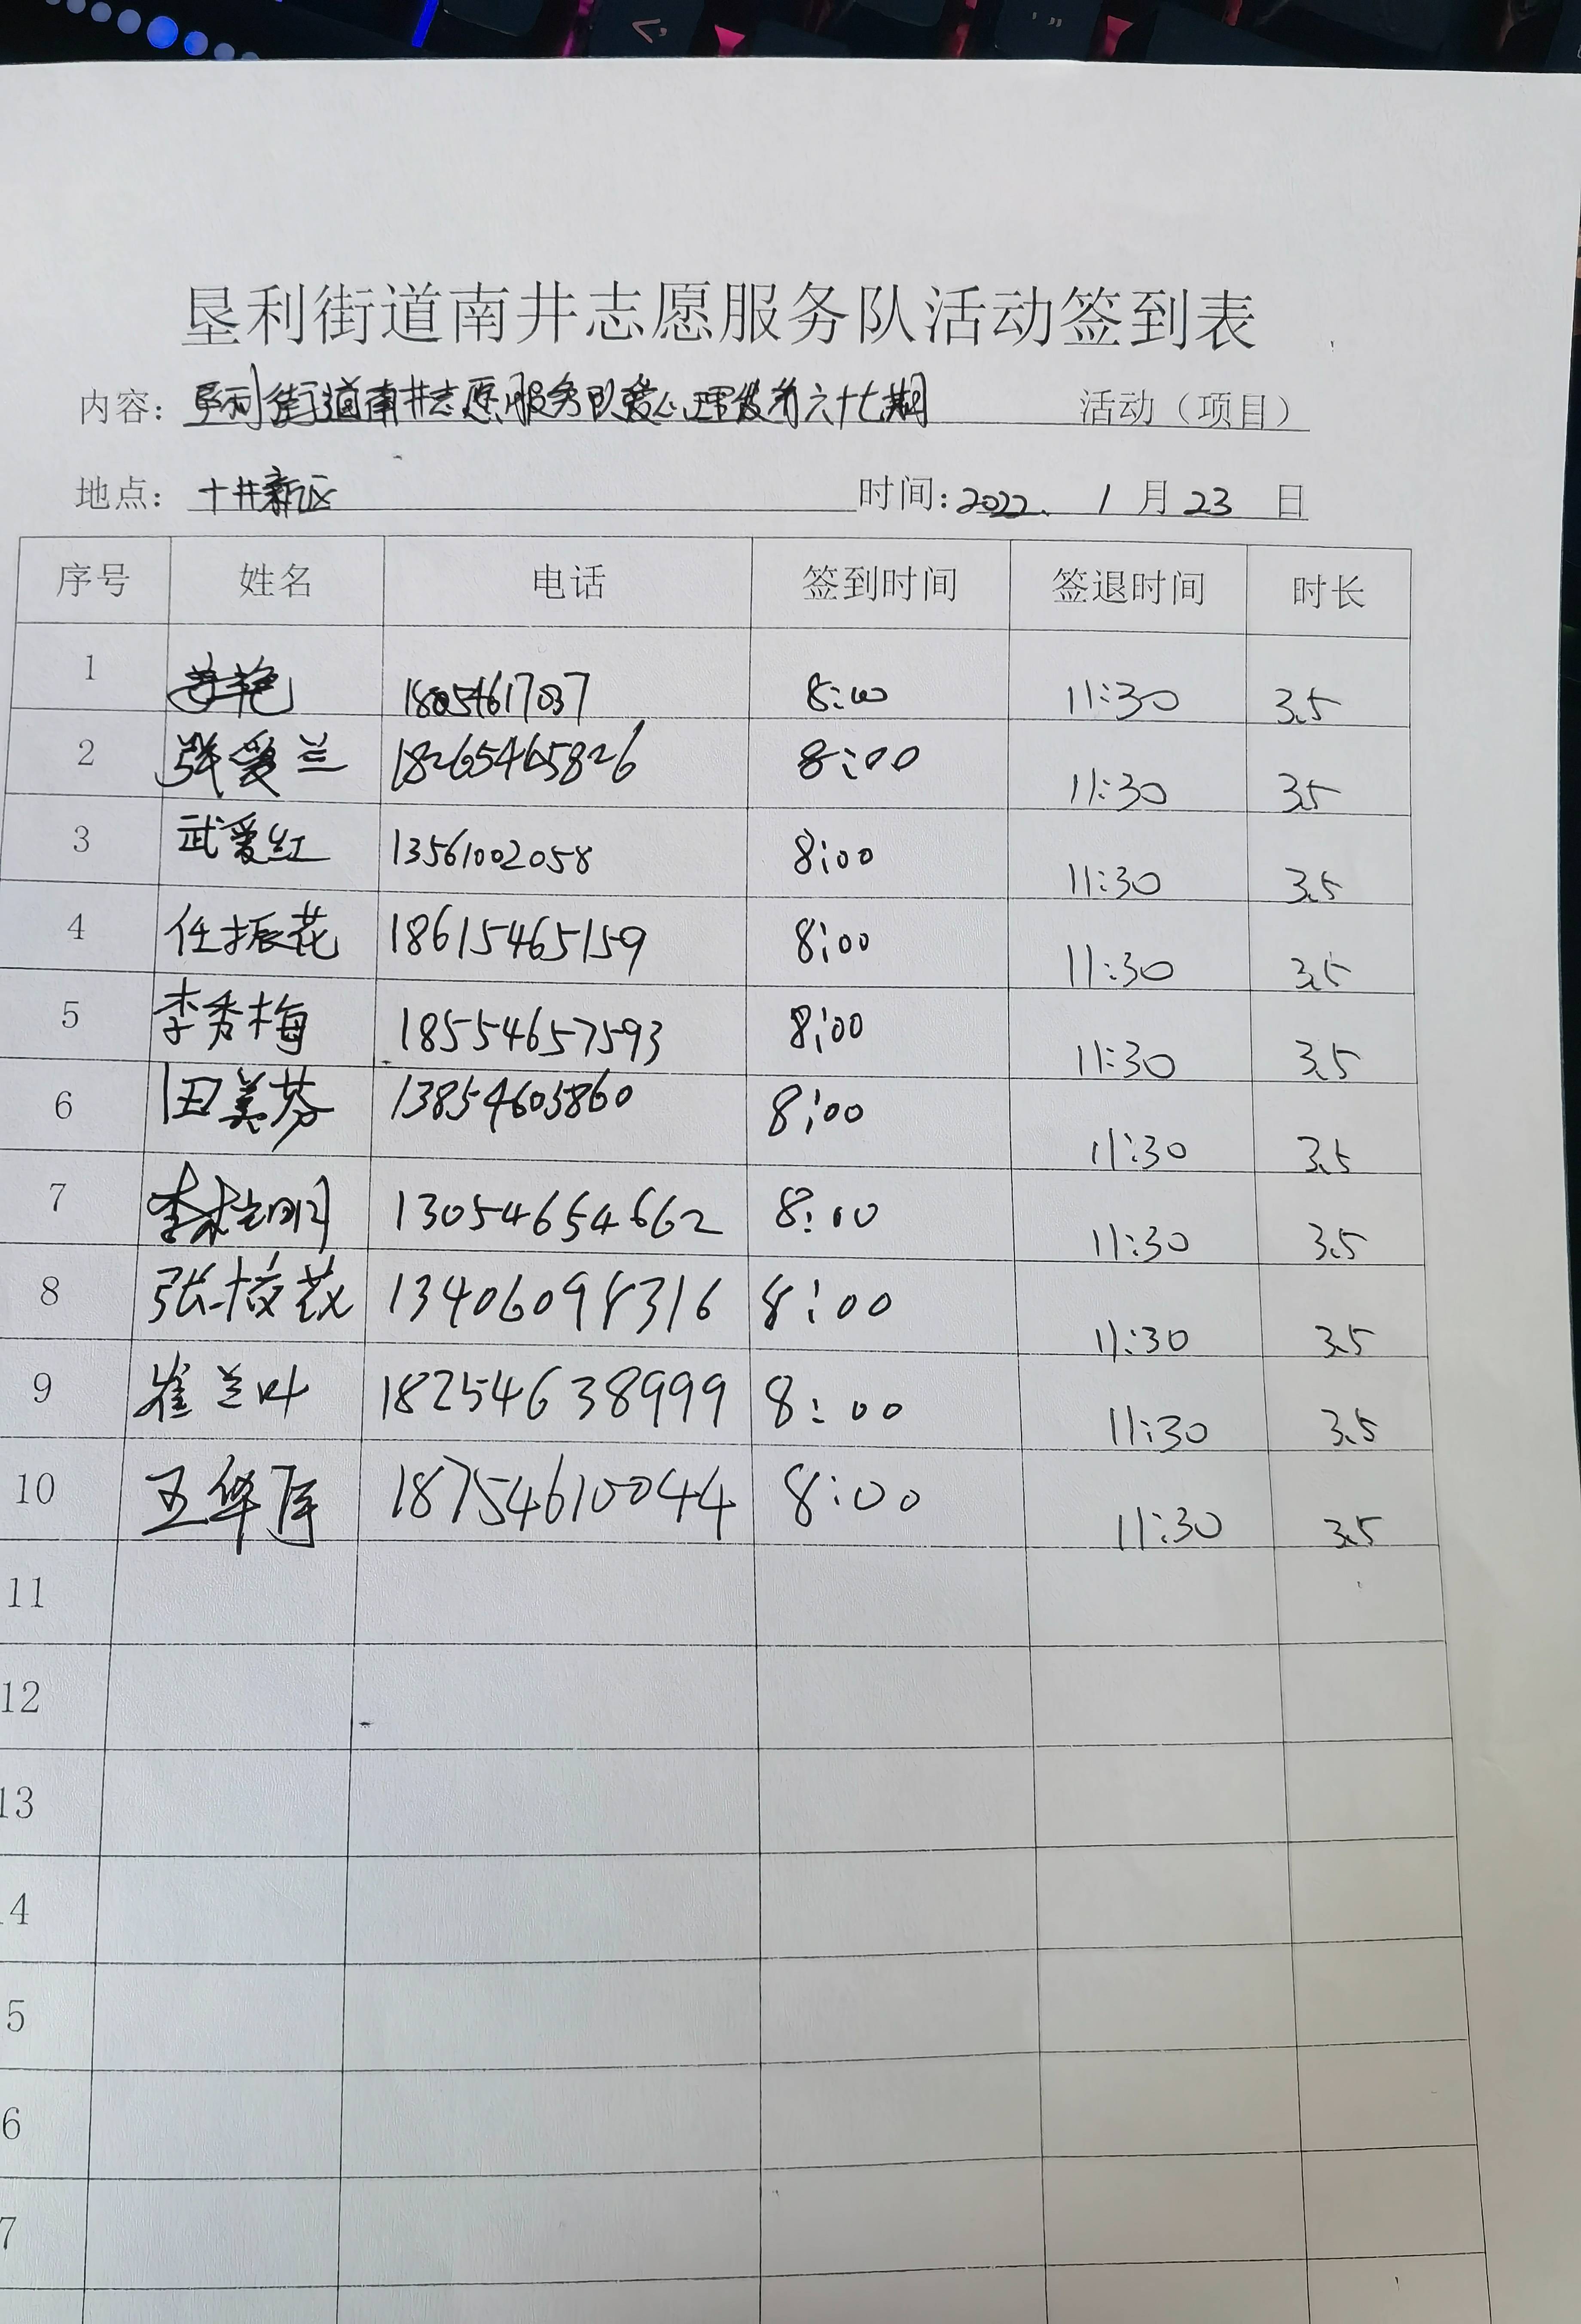 垦利街道南井志愿服务队活动签到表
内容: 垦利街道南井志愿服务队爱心理发第六十七期 活动（项目）
地点: 十井新区 时间: 2022. 1 月 23 日
序号 姓名 电话 签到时间 签退时间 时长
1 18054617037 8:00 11:30 3.5
2 张爱兰 18265465826 8:00 11:30 3.5
3 武爱红 13561002058 8:00 11:30 3.5
4 任振花 18615465159 8:00 11:30 3.5
5 李秀梅 18554657593 8:00 11:30 3.5
6 田美芬 13854605860 8:00 11:30 3.5
7 13054654662 8:00 11:30 3.5
8 张 13406098316 8:00 11:30 3.5
9 崔兰叶 18254638999 8:00 11:30 3.5
10 王华 18754610044 8:00 11:30 3.5
11
12
13
4
5
6
7